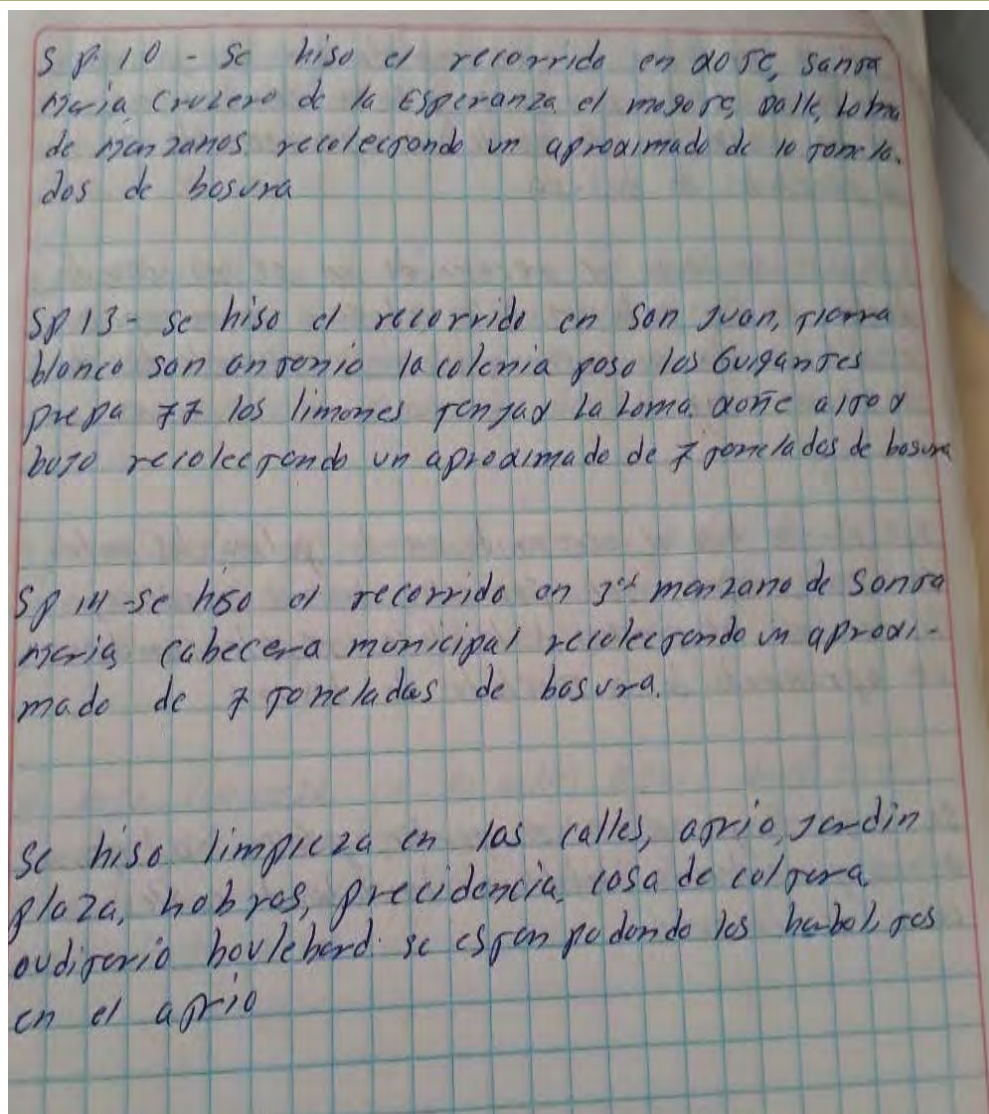 S P. 10 - Se hiso el recorrido en dote, Santa
Maria Crucero de la Esperanza el mogote, Valle, Loma
de Manzanos recolectando un aproximado de 10 tonela.
das de basura
SP 13 - se hiso el recorrido en San Juan, tierra
blanca san antonio la colonia poso los Guigantes
prepa 77 los limones tenjay La Loma doñe alto y
bajo recolectando un aproximado de 7 toneladas de basura
SP 14 - se hiso el recorrido en 3ra manzana de Santa
Maria, cabecera municipal recolectando un aproxi-
mado de 7 toneladas de basura.
Se hiso limpieza en las calles, atrio, Jardin
plaza, precidencia, casa de coltura,
auditorio boulebard se estan podando los
en el atrio